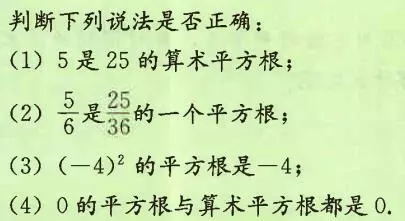 判断下列说法是否正确：
(1) 5 是 25 的算术平方根；
(2) 5/6 是 25/36 的一个平方根；
(3) (−4)² 的平方根是−4；
(4) 0 的平方根与算术平方根都是 0.